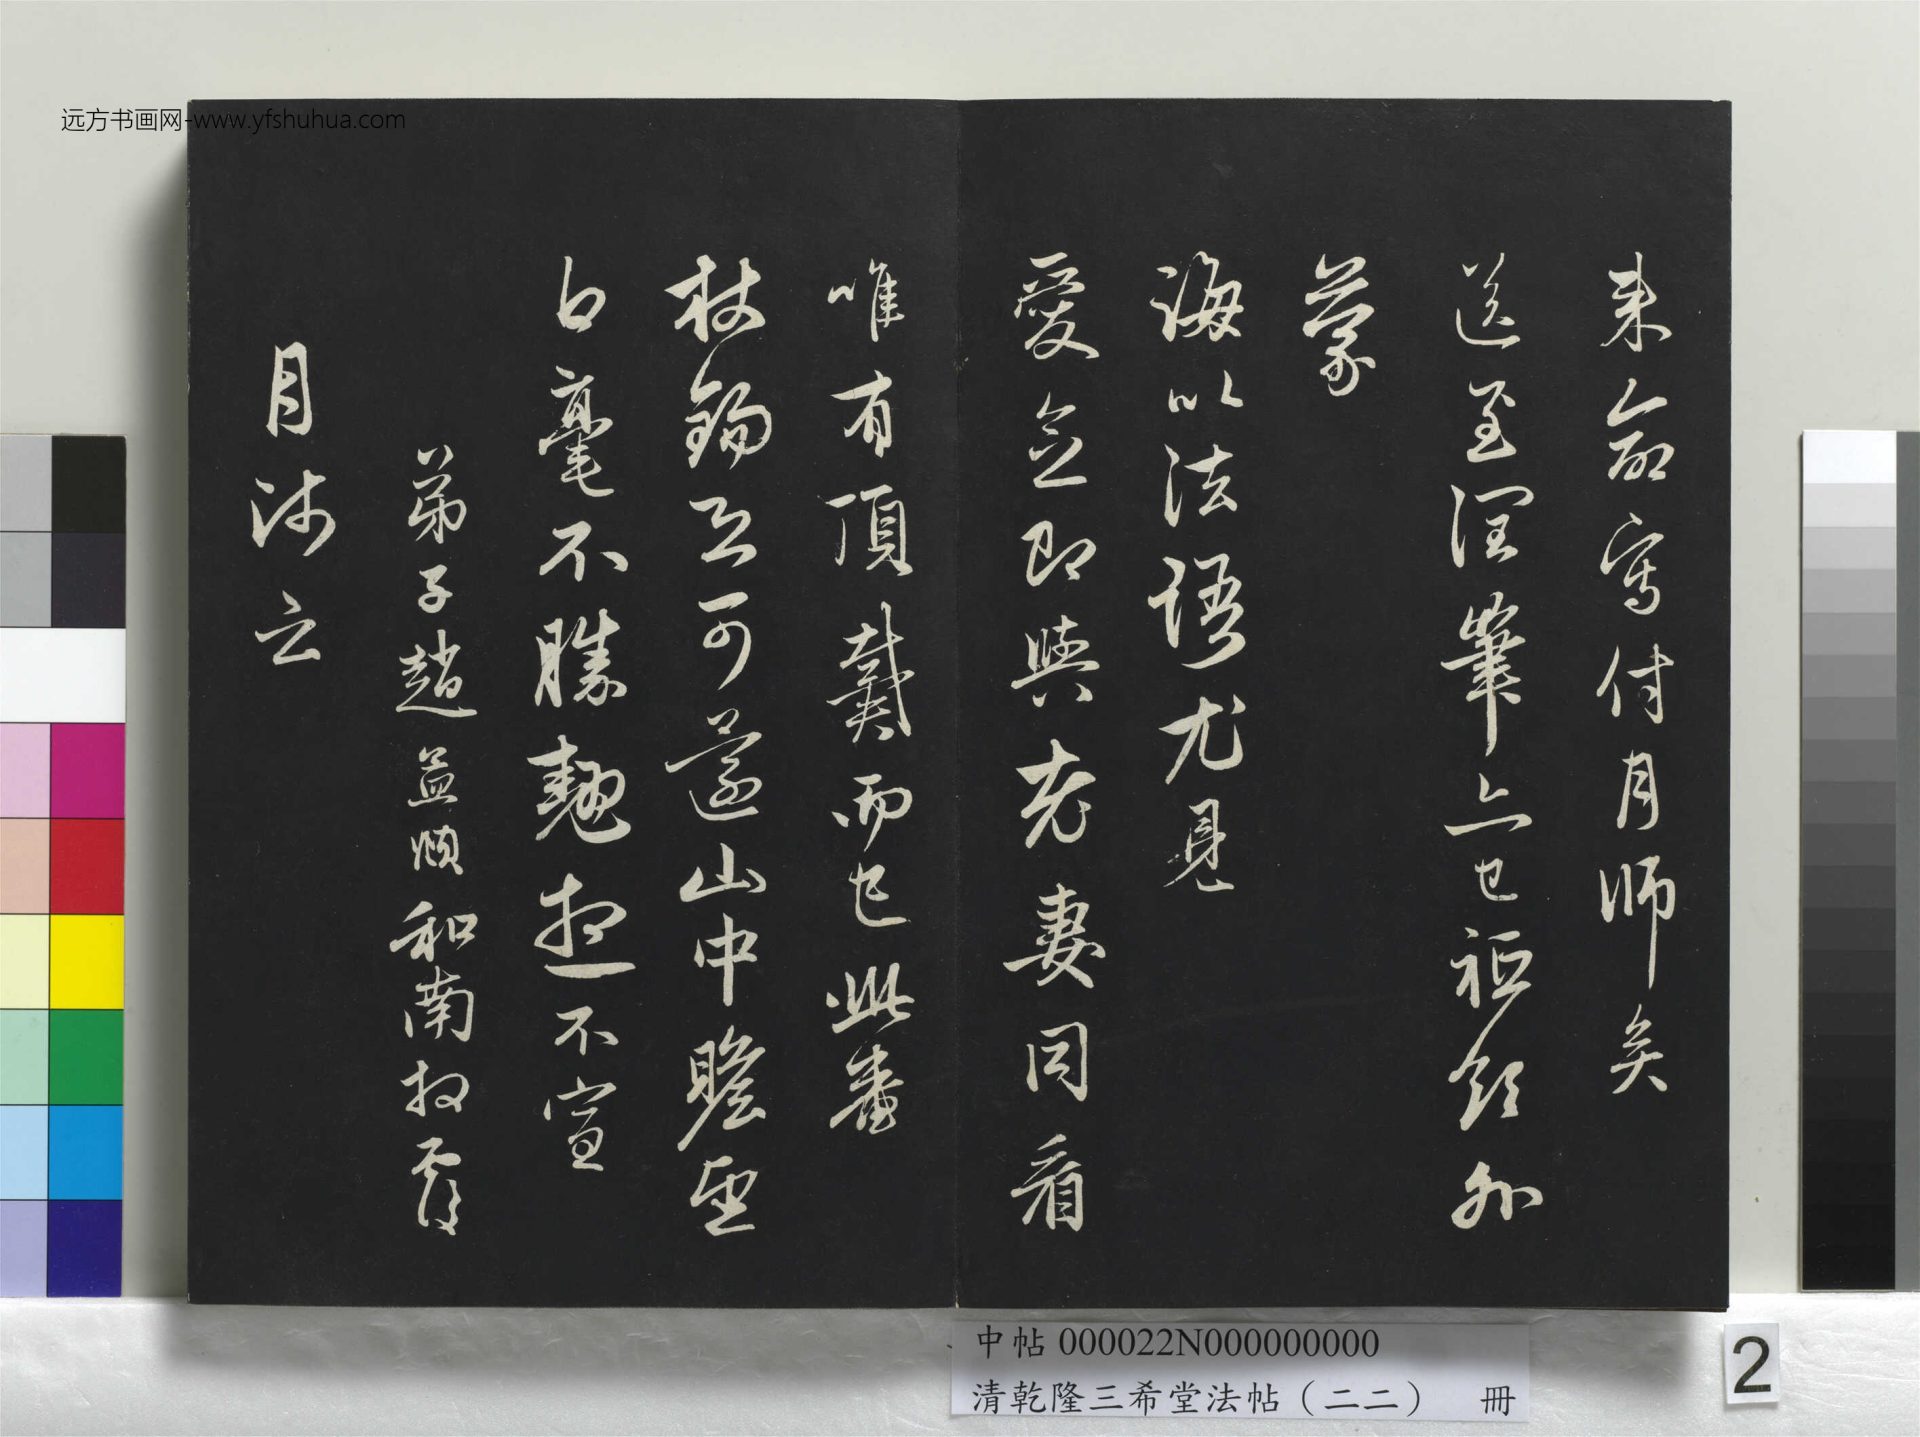 来命寫付月師矣
送至潤筆亦已祗領外
蒙
誨以法語尤見
愛念即與老妻同看
唯有頂戴而已此番
杖錫又可還山中瞻望
白毫不勝翹想不宣
弟子趙孟頫和南拜覆
目沙之
远方书画网-www.yfshuhua.com
中帖 000022N000000000
清乾隆三希堂法帖（二二） 冊
2